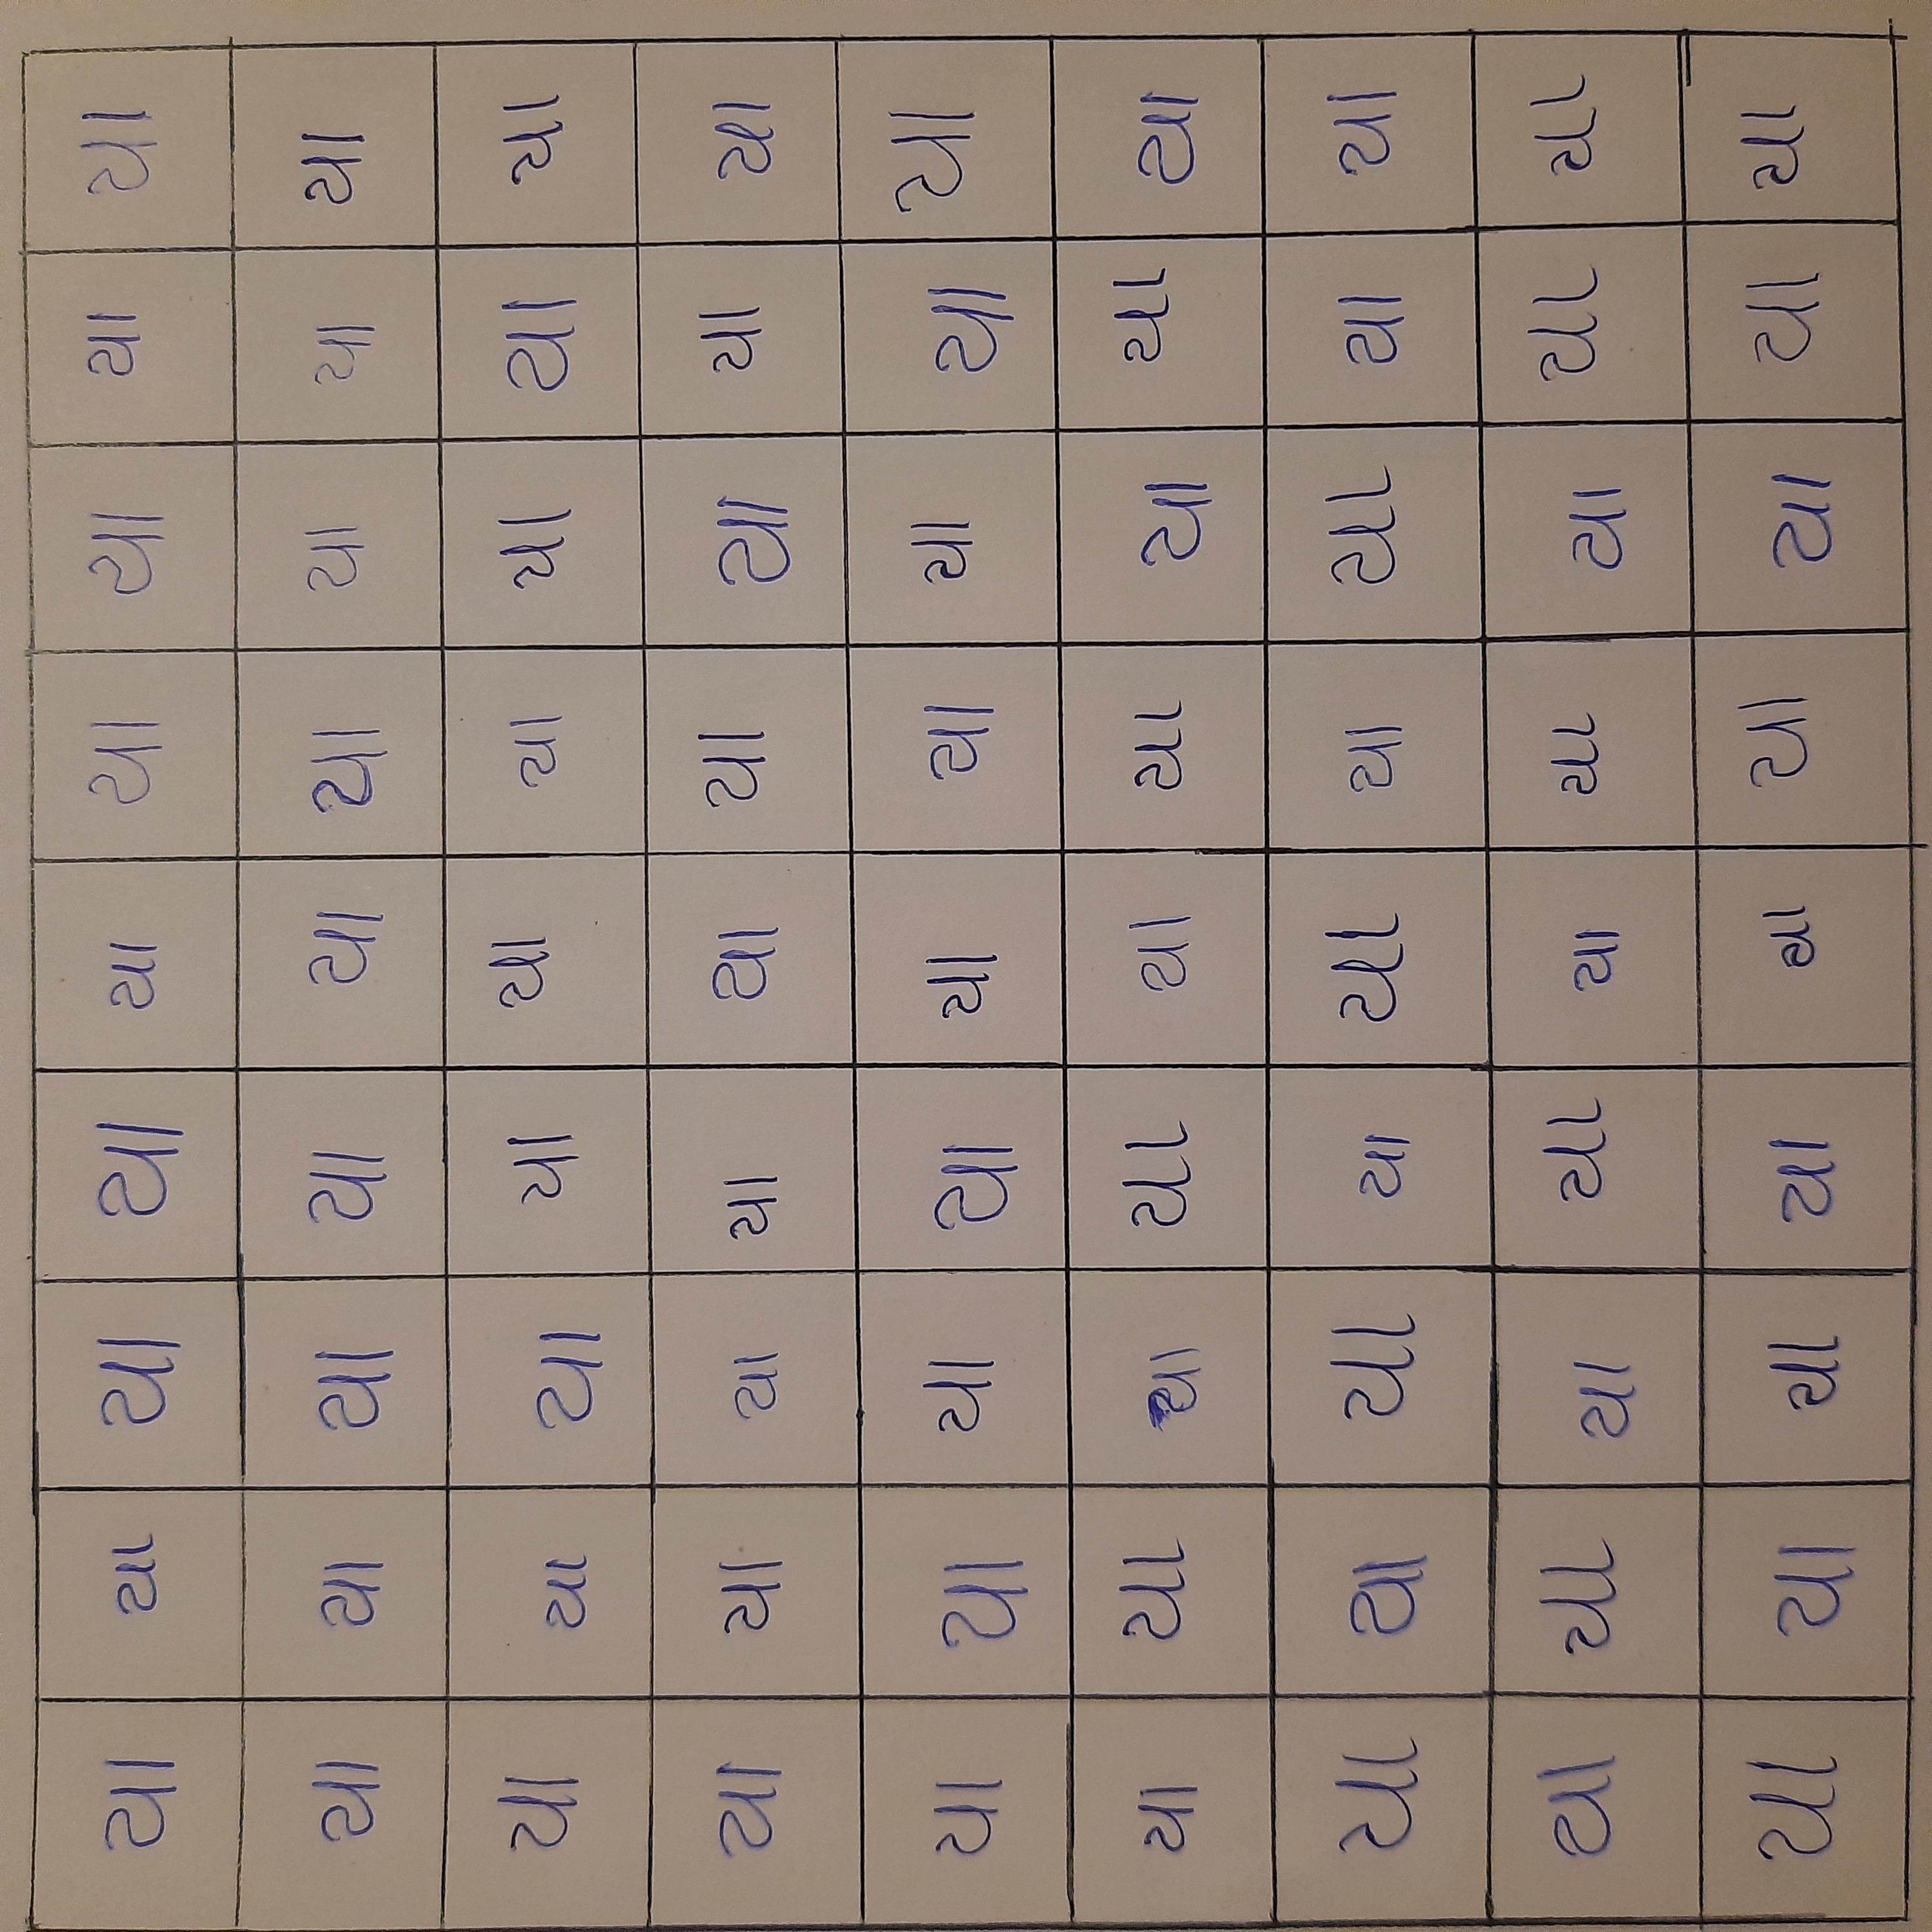 યા યા યા યા યા યા યા યા યા
યા યા યા યા યા યા યા યા યા
યા યા યા યા યા યા યા યા યા
યા યા યા યા યા યા યા યા યા
યા યા યા યા યા યા યા યા યા
યા યા યા યા યા યા યા યા યા
યા યા યા યા યા યા યા યા યા
યા યા યા યા યા યા યા યા યા
યા યા યા યા યા યા યા યા યા